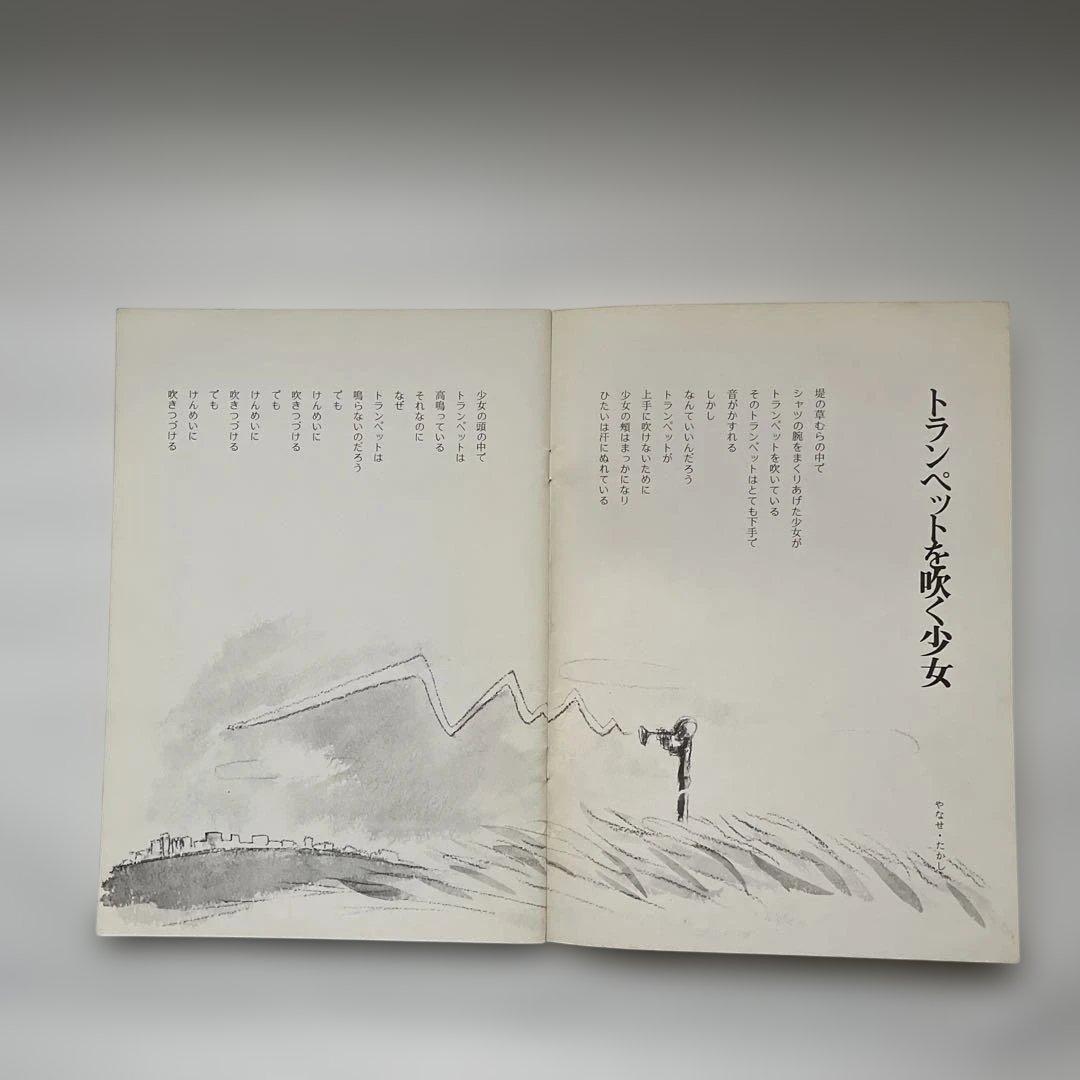 トランペットを吹く少女
やなせ・たかし
堤の草むらの中で
シャツの腕をまくりあげた少女が
トランペットを吹いている
そのトランペットはとても下手で
音がかすれる
しかし
なんていいんだろう
トランペットが
上手に吹けないために
少女の頬はまっかになり
ひたいは汗にぬれている
少女の頭の中で
トランペットは
高鳴っている
それなのに
なぜ
トランペットは
鳴らないのだろう
でも
けんめいに
吹きつづける
でも
けんめいに
吹きつづける
でも
けんめいに
吹きつづける